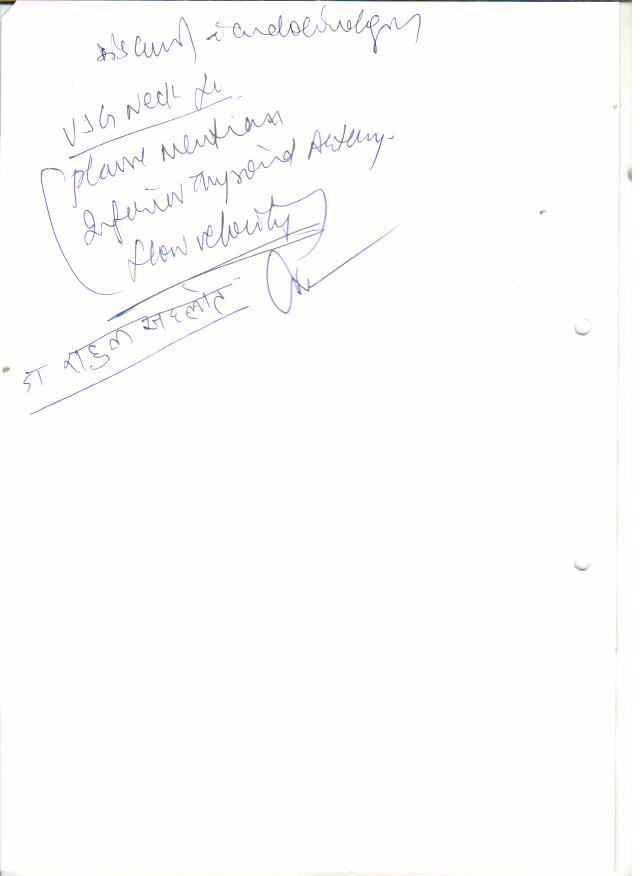 Endocrinology
USG Neck
please mention
Inferior Thyroid Artery.
flow velocity
डा राहुल